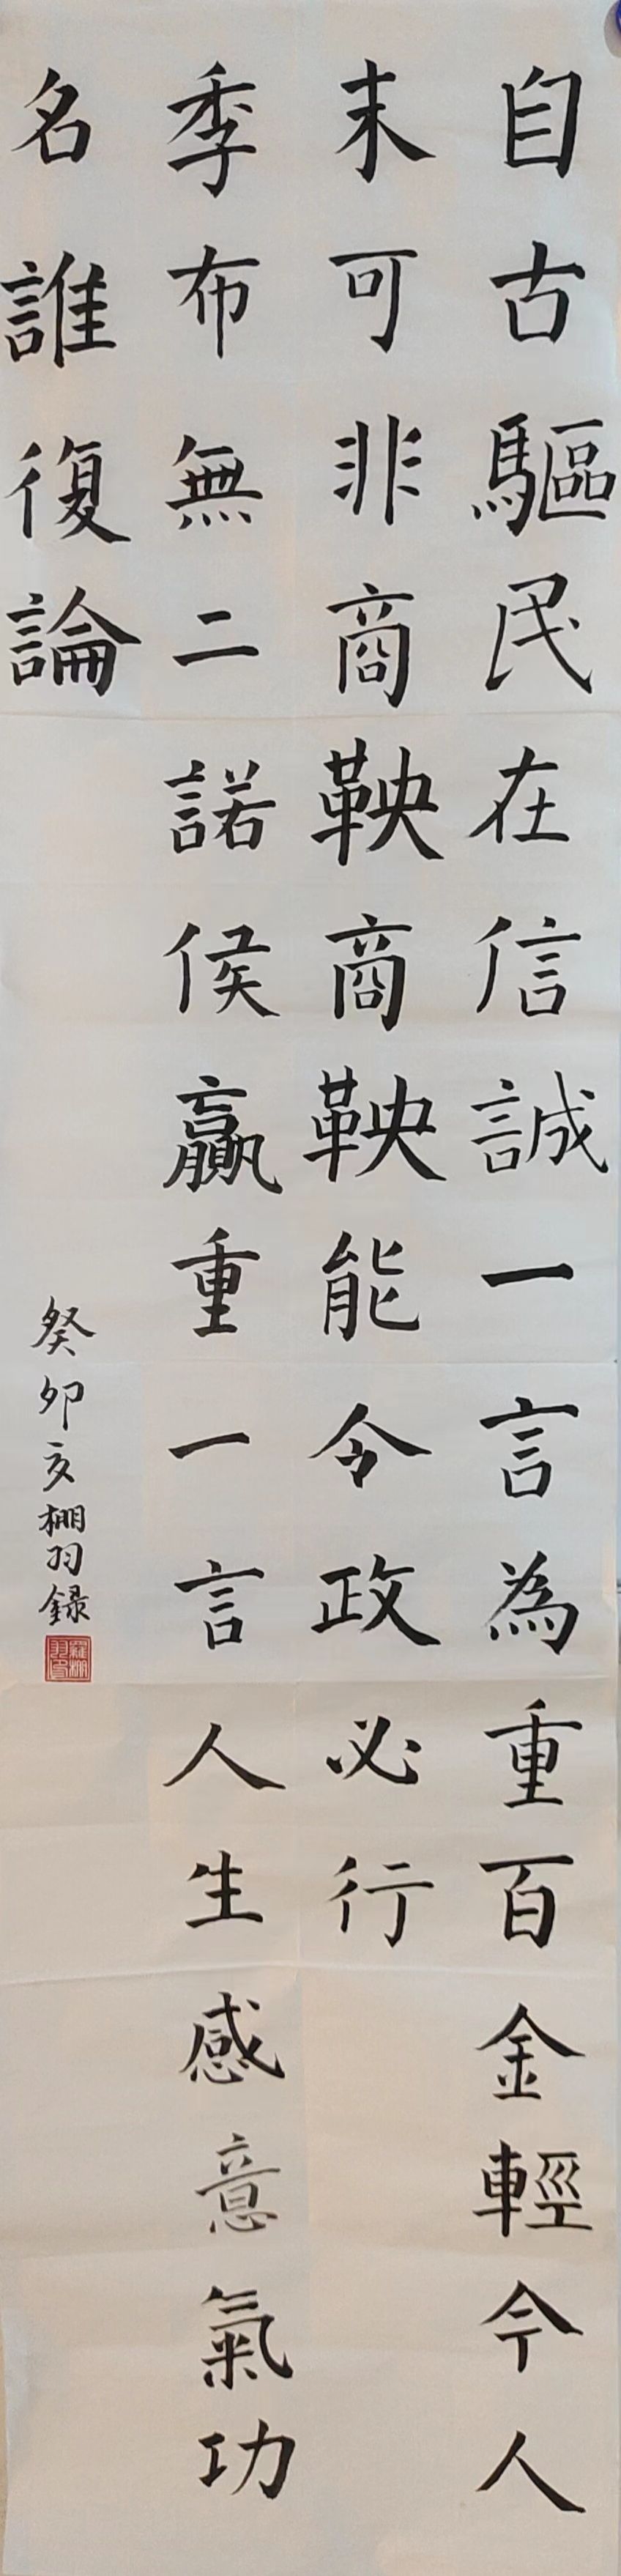 自古驅民在信誠一言為重百金輕今人
未可非商鞅商鞅能令政必行
季布無二諾侯贏重一言人生感意氣功
名誰復論
癸卯亥棚羽録